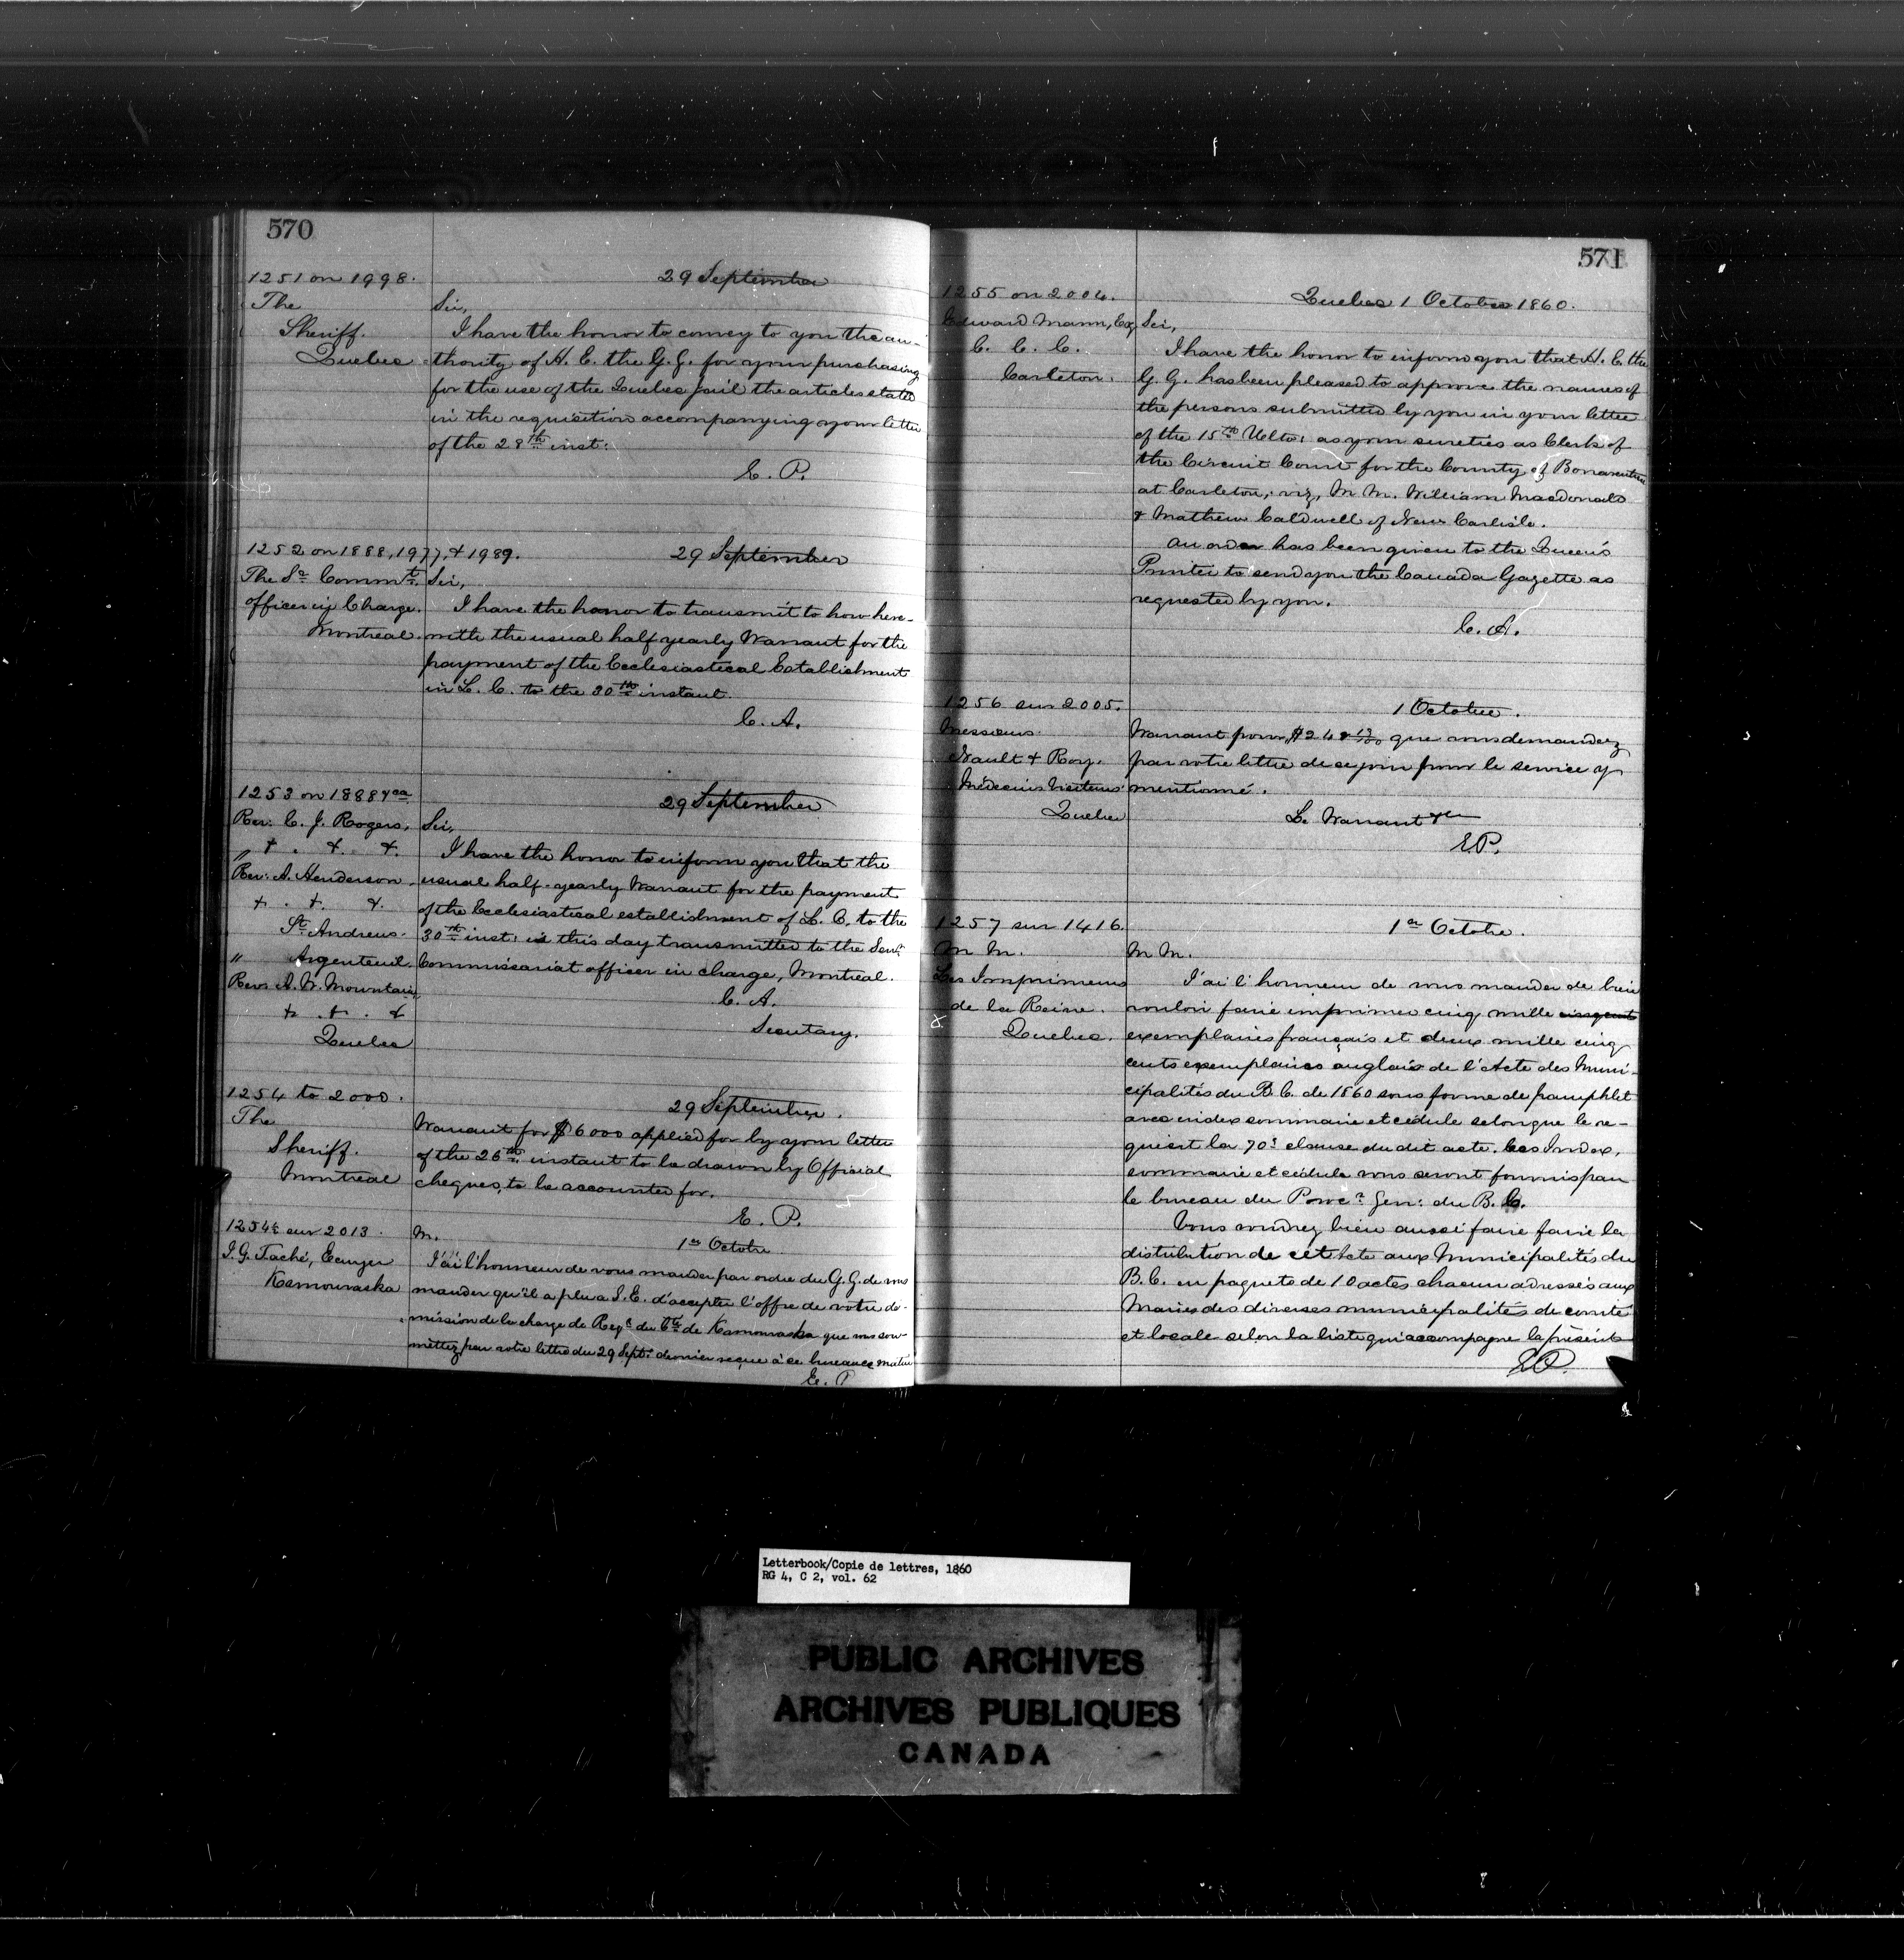 570
1251 on 1998.
The
Sheriff.
Quebec
29 September
Sir,
I have the honor to convey to you the au-
thority of H. E. the G. G. for your purchasing
for the use of the Quebec Jail the articles stated
in the requisition accompanying your letter
of the 28th inst:
E. P.
1252 on 1888, 1977, & 1989.
The Sr Commt.
officer in Charge.
Montreal.
29 September
Sir,
I have the honor to transmit to how here-
with the usual half yearly Warrant for the
payment of the Ecclesiastical Establishment
in L. C. to the 30th instant.
C. A.
1253 on 1888 &ca
Rev: C. J. Rogers,
" & . &. &.
Rev: A. Henderson,
& . &. &.
St Andrews.
" Argenteuil.
Revs A. W. Mountain,
& . & . &
Quebec
29 September
Sir,
I have the honor to inform you that the
usual half-yearly Warrant for the payment
of the Ecclesiastical establishment of L. C. to the
30th inst: is this day transmitted to the Senr
Commissariat officer in charge, Montreal.
C. A.
Secretary.
1254 to 2000.
The
Sheriff.
Montreal
29 September.
Warrant for $6000 applied for by your letter
of the 26th instant to be drawn by Official
cheques, to be accounted for.
E. P.
1254½ sur 2013.
J. G. Taché, Ecuyer
Kamouraska
1er Octobre
M.
J'ai l'honneur de vous mander par ordre du G. G. de vous
mander qu'il a plu a S. E. d'accepter l'offre de votre dé-
mission de la charge de Regr du Cté de Kamouraska que vous sou-
mettez par votre lettre du 29 Sept: dernier reçue à ce bureau ce matin
E. P
571
1255 on 2004.
Edward Mann, Esq
C. C. C.
Carleton.
Quebec 1 October 1860.
Sir,
I have the honor to inform you that H. E. the
G. G. has been pleased to approve the names of
the persons submitted by you in your letter
of the 15th Ulto: as your sureties as Clerk of
the Circuit Court for the County of Bonaventure
at Carleton, viz, M M. William Macdonald
& Mathew Caldwell of New Carlisle.
An order has been given to the Queen's
Printer to send you the Canada Gazette as
requested by you.
C. A.
1256 sur 2005.
Messieurs
Nault & Roy.
Médecins Visiteurs
Quebec
1 Octobre.
Warrant pour que vous demandez
par votre lettre de ce jour pour le service y
mentionné.
L. Warrant &c
E.P.
1257 sur 1416.
M M.
Les Imprimeurs
de la Reine.
Quebec.
1er Octobre.
M M.
J'ai l'honneur de vous mander de bien
vouloir faire imprimer cinq mille cinq cents
exemplaires français et deux mille cinq
cents exemplaires anglais de l'Acte des Muni-
cipalités du B. C. de 1860 sous forme de pamphlet
avec index sommaire et cédule selon que le re-
quiert la 70e clause du dit acte. Ces Index,
sommaire et cédule vous seront fournis par
le bureau du Procr Gen: du B. C.
Vous voudrez bien aussi faire faire la
distribution de cet Acte aux Municipalités du
B. C. en paquets de 10 actes chacun adressés aux
Maires des diverses municipalités de comté
et locale selon la liste qui accompagne la présente
E P.
Letterbook/Copie de lettres, 1860
RG 4, C 2, vol. 62
PUBLIC ARCHIVES
ARCHIVES PUBLIQUES
CANADA